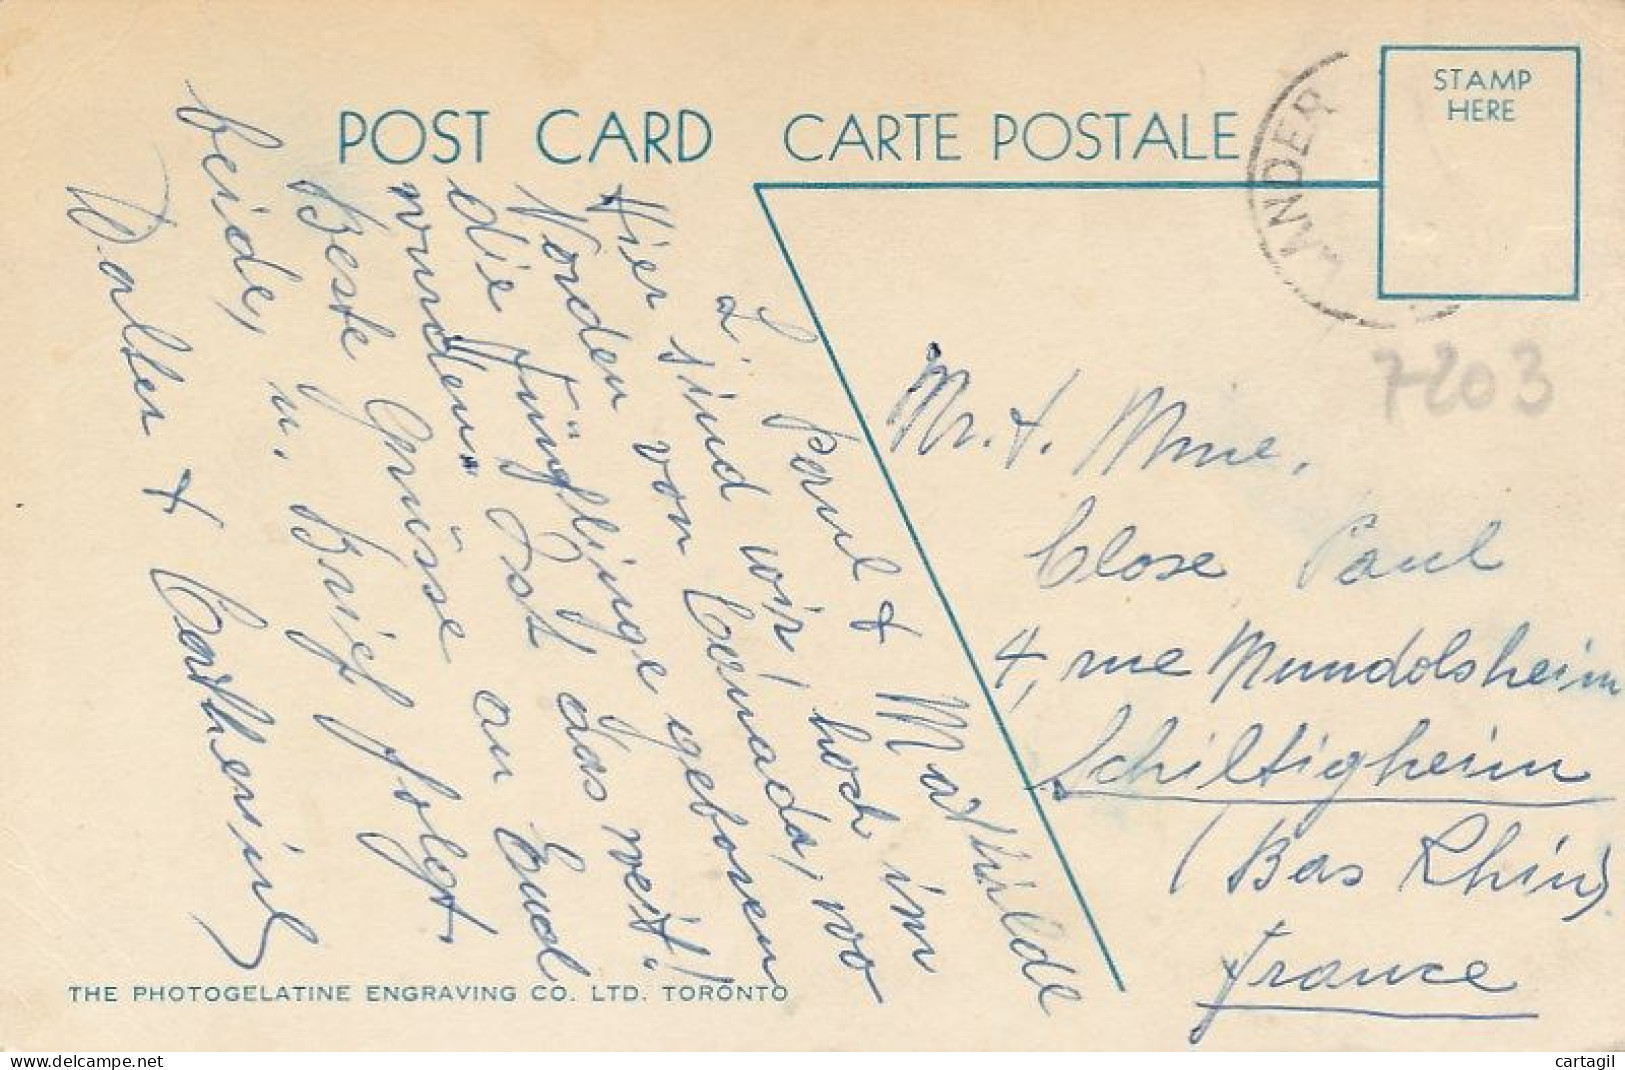 POST CARD CARTE POSTALE
STAMP
HERE
LANDER
7203
L. Paul & Mathilde
Hier sind wir! hoch im
Norden von Canada, wo
die "Jünglinge geboren
wurden". Ist das weit!!
Beste Grüsse an Euch
beide, u. Brief folgt.
Walter & Catherine
Mr. & Mme.
Close Paul
4, rue Mundolsheim
Schiltigheim
(Bas Rhin)
France
THE PHOTOGELATINE ENGRAVING CO. LTD. TORONTO
www.delcampe.net
cartagil